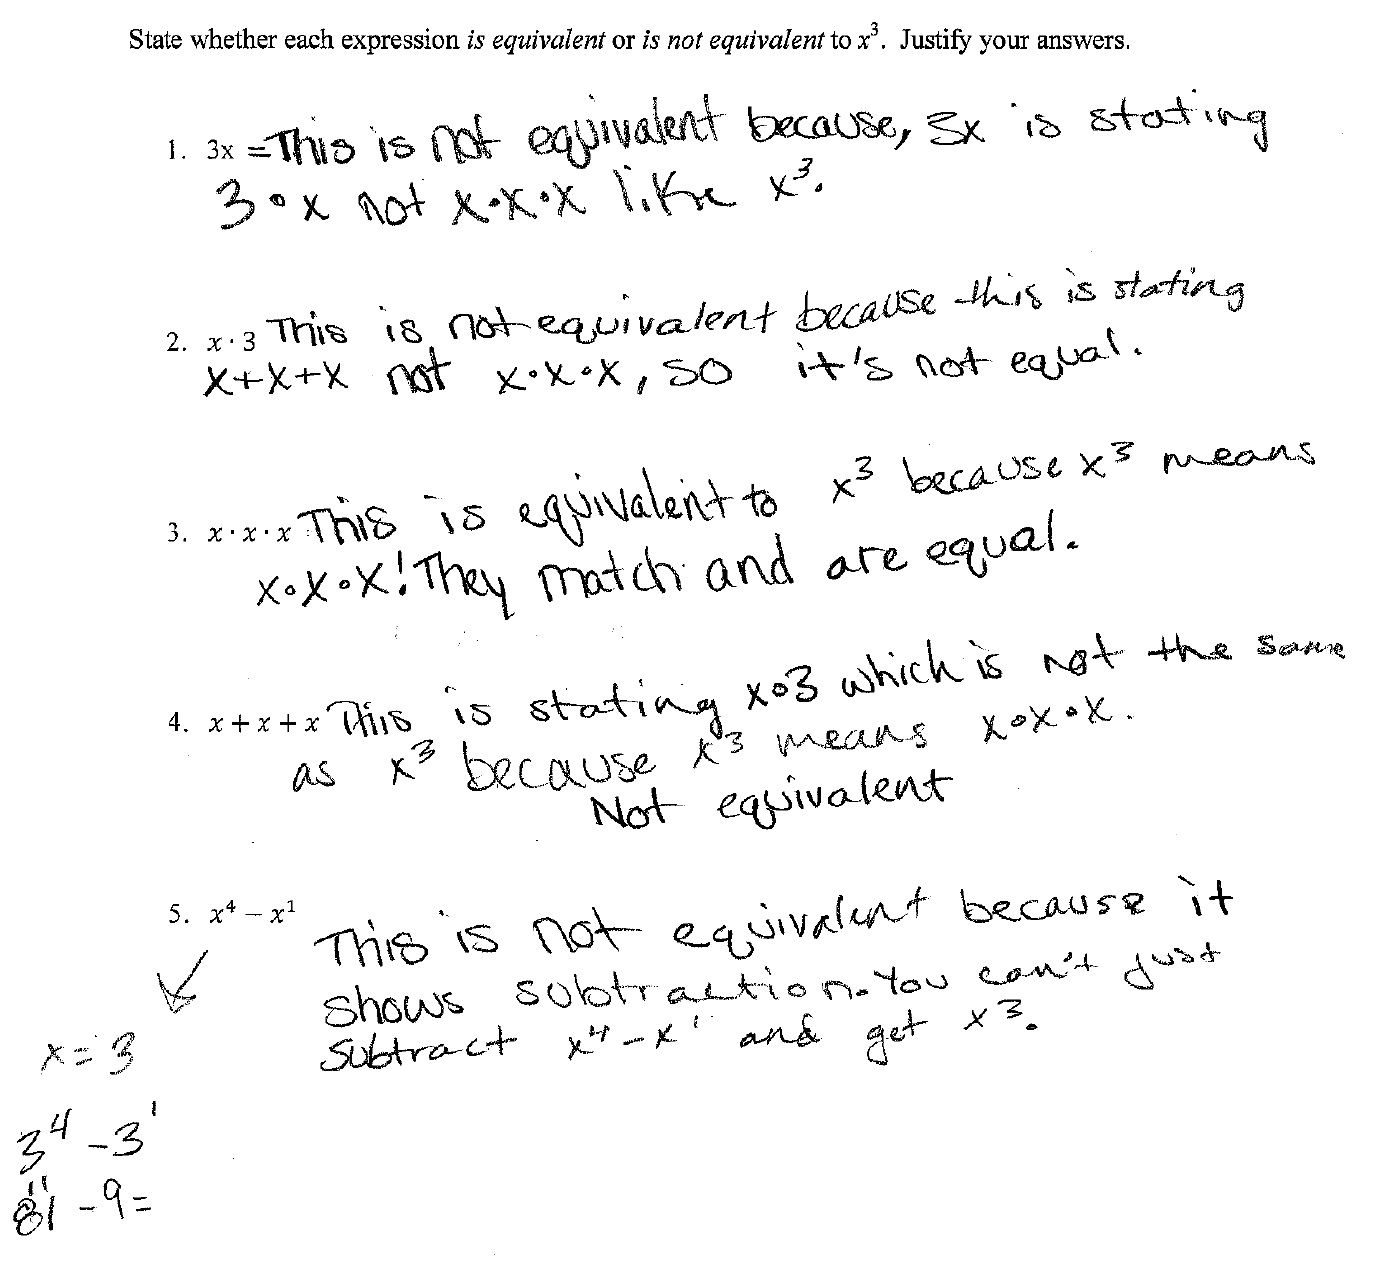 State whether each expression is equivalent or is not equivalent to x³. Justify your answers.
1. 3x = This is not equivalent because, 3x is stating
3 · x not x·x·x like x³.
2. x · 3 This is not equivalent because this is stating
x+x+x not x·x·x, so it's not equal.
3. x · x · x This is equivalent to x³ because x³ means
x·x·x! They match and are equal.
4. x + x + x This is stating x·3 which is not the same
as x³ because x³ means x·x·x.
Not equivalent
5. x⁴ – x¹ This is not equivalent because it
shows subtraction. You can't just
subtract x⁴ – x¹ and get x³.
x = 3
3⁴ – 3¹
81 – 9 =